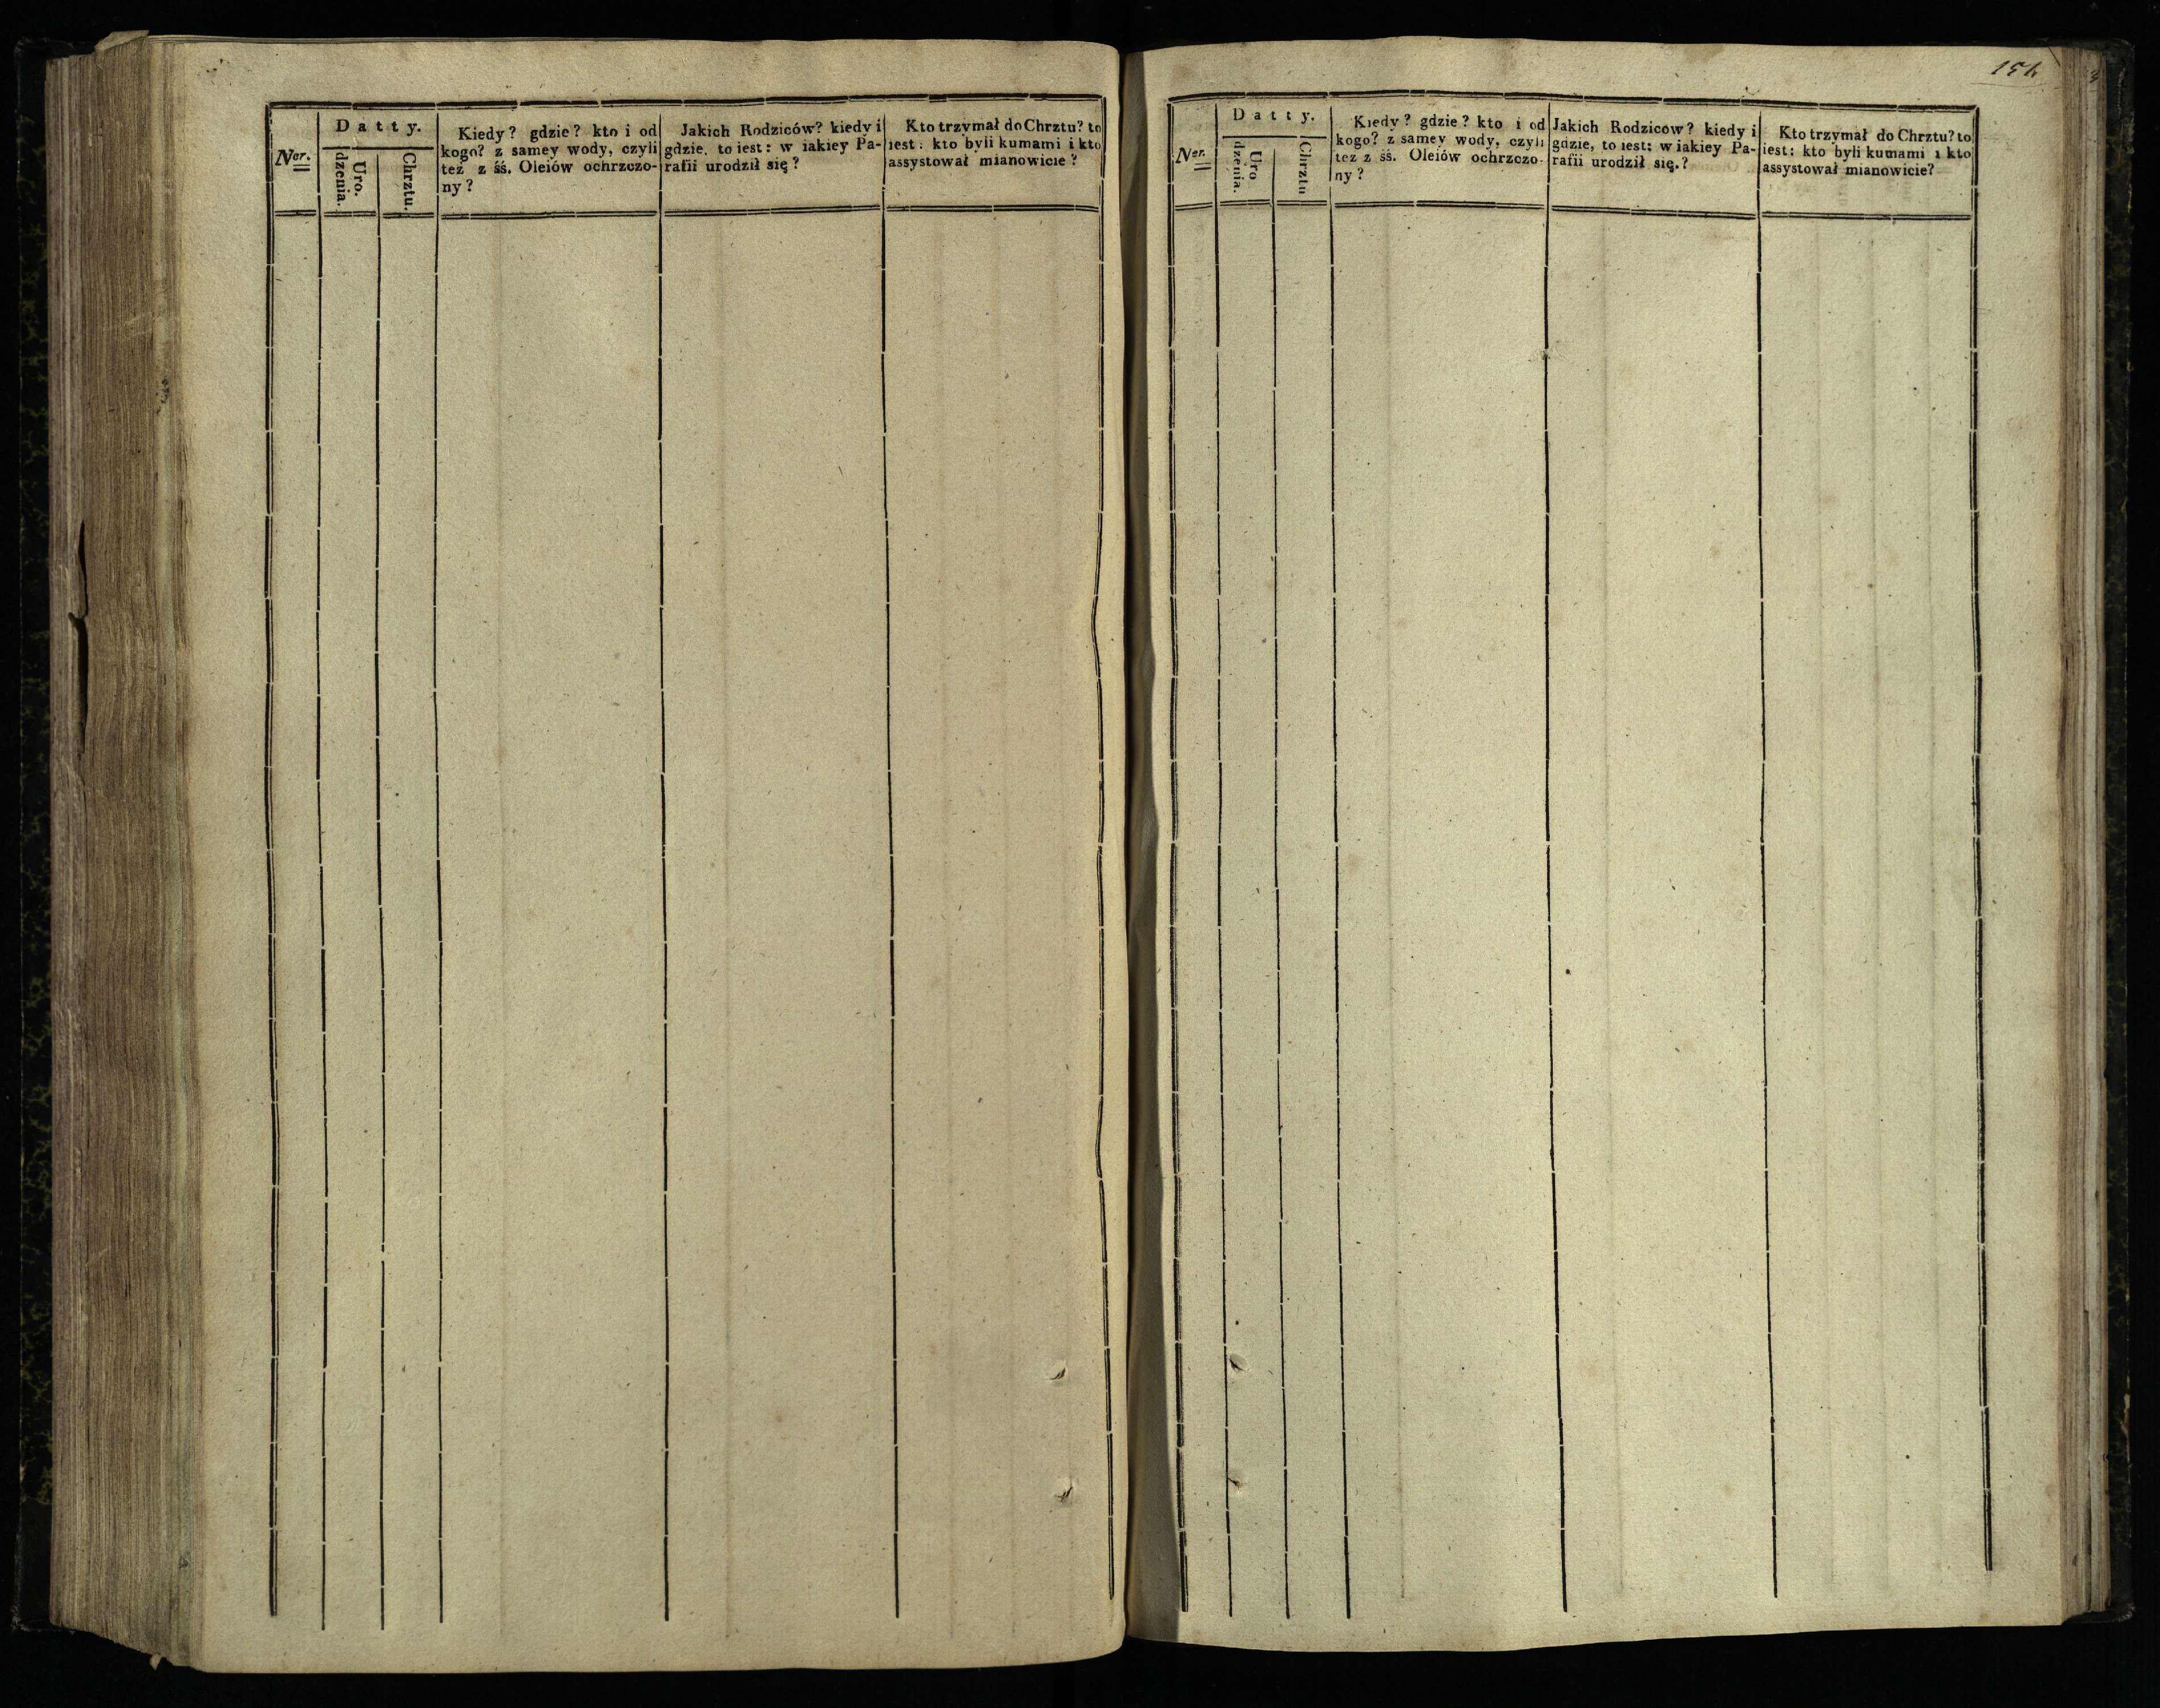 Datty.
Ner.
Uro.
dzenia.
Chrztu.
Kiedy? gdzie? kto i od
kogo? z samey wody, czyli
też z śś. Oleiów ochrzczo-
ny?
Jakich Rodziców? kiedy i
gdzie, to iest: w iakiey Pa-
rafii urodził się?
Kto trzymał do Chrztu? to
iest: kto byli kumami i kto
assystował mianowicie?
Datty.
Ner.
Uro
dzenia.
Chrztu
Kiedy? gdzie? kto i od
kogo? z samey wody, czyli
też z śś. Oleiów ochrzczo-
ny?
Jakich Rodziców? kiedy i
gdzie, to iest: w iakiey Pa-
rafii urodził się.?
Kto trzymał do Chrztu? to
iest: kto byli kumami i kto
assystował mianowicie?